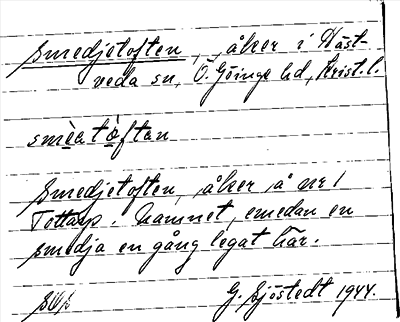 Smedjetoften, åker i Häst-
veda sn, Ö. Göinge hd, Krist. l.
smèatòftan
Smedjetoften, åker å nr 1
Tottarp. Namnet, emedan en
smedja en gång legat här.
G. Sjöstedt 1944.